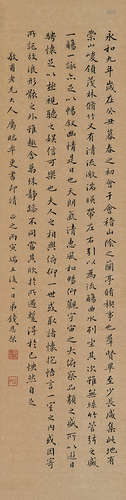 永和九年歲在癸丑暮春之初會于會稽山陰之蘭亭脩禊事也羣賢畢至少長咸集此地有
崇山峻領茂林脩竹又有清流激湍暎帶左右引以為流觴曲水列坐其次雖無絲竹管絃之盛
一觴一詠亦足以暢敘幽情是日也天朗氣清惠風和暢仰觀宇宙之大俯察品類之盛所以遊目
騁懷足以極視聽之娛信可樂也夫人之相與俯仰一世或取諸懷抱悟言一室之內或因寄
所託放浪形骸之外雖趣舍萬殊靜躁不同當其欣於所遇蹔得於己快然自足
老兄大人屬 正之丙寅